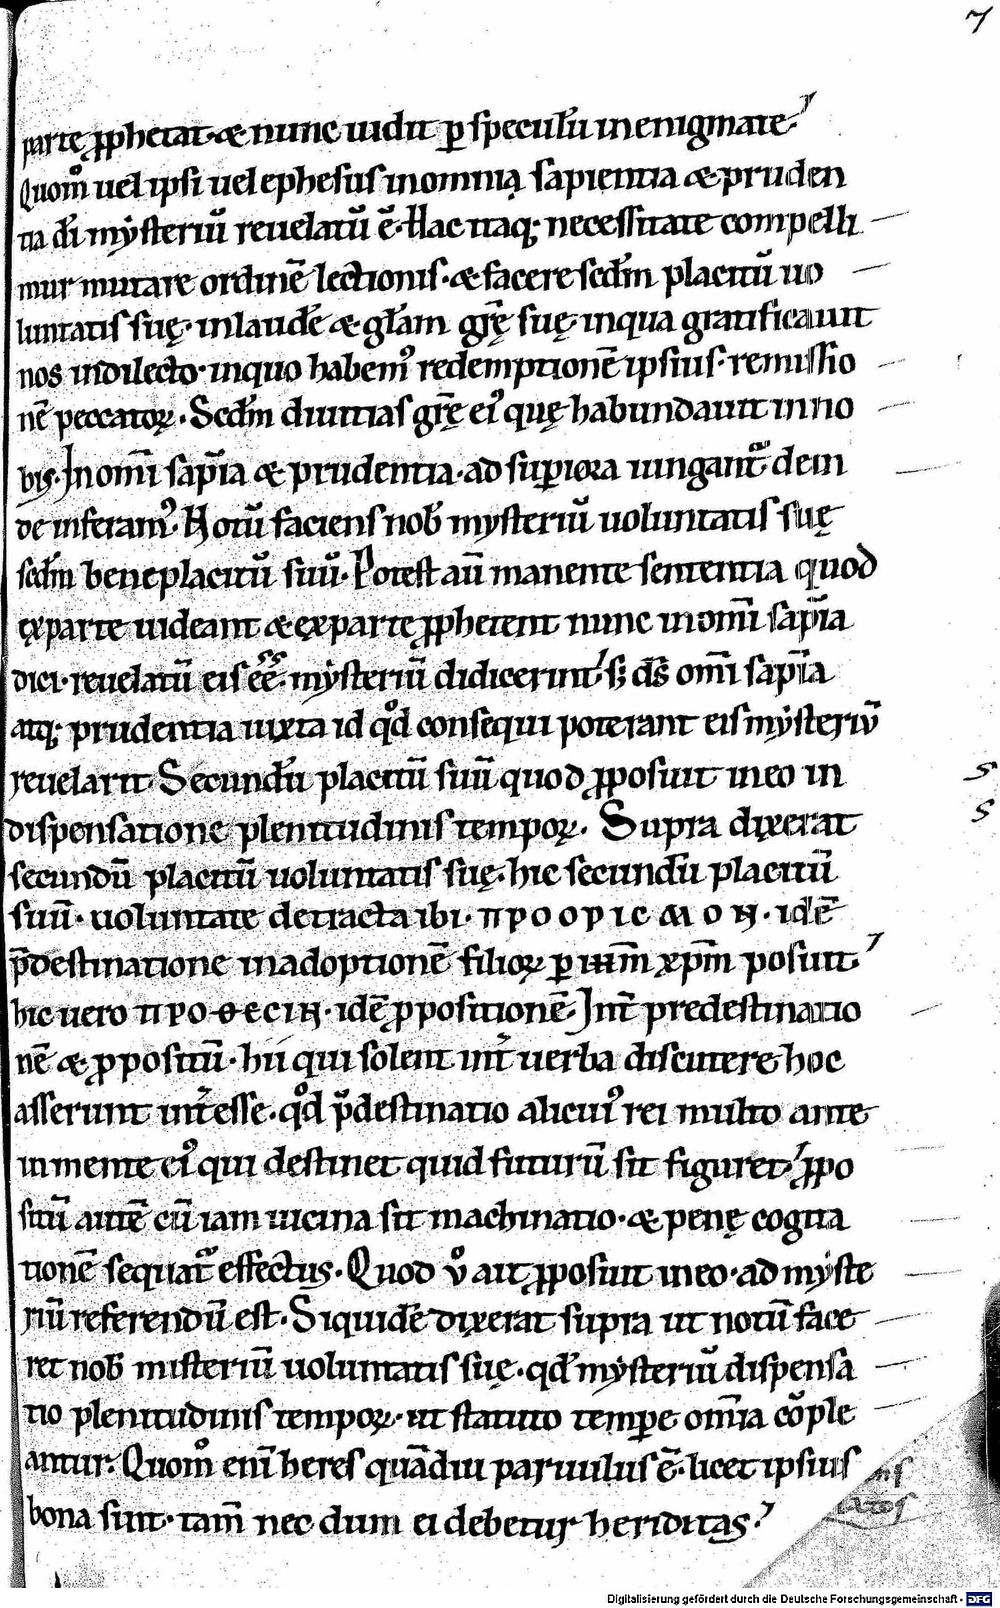 7
partę ꝓphetat· & nunc uidit ꝑ speculū in enigmate·
Quom̊ uel ipsi uel ephesus in omnia sapientia & pruden
tia dī mẏsteriū reuelatū ē· Hac itaq; necessitate compelli
mur mutare ordinē lectionis· & facere scđm placitū uo
luntatis suę· in laudē & glam gr̄ę suę· in qua gratificauit
nos in dilecto· in quo habemꝰ redemptionē ipsius· remissio
nē peccatoꝝ· Scđm diuitias gr̄ę eiꝰ quę habundauit in no
bis· In om̄i sap̄ia & prudentia· ad suꝑiora iungant᷑ dein
de inferamꝰ· Hotū faciens nob̄ mysteriū uoluntatis suę
scđm beneplacitū suū· Potest aū manente sententia quod
ęx parte uideant & ęx partę ꝓphetent nunc in om̄i sap̄ia
dici· reuelatū eis eē· mẏsteriū didicerint· s; d̄s om̄i sap̄ia
atq; prudentia iuxta id qd̊ consequi poterant eis mẏsteriū
reuelarit· Secundū placitū suū quod ꝓposuit in eo in
dispensatione plenitudinis tempoꝝ· Supra dixerat
secundū placitū uoluntatis suę· hic secundū placitū
suū· uoluntate detracta ibi· προορισμον· idē
p̄destinatione in adoptionē filioꝝ ꝑ ihm̄ xp̄m posuit·
hic uero προθεσιν· idē ꝓpositionē· Int̄ predestinatio
nē & ꝓpositū· hii qui solent int̄ uerba discutere hoc
asserunt int̄esse· qd̊ p̄destinatio alicuiꝰ rei multo ante
in mente eiꝰ qui destinet quid futurū sit figuret· ꝓpo
sitū autē cū iam uicina sit machinatio· & penę cogita
tionē sequat᷑ effectus· Quod v̊ ait ꝓposuit in eo· ad mẏste
riū referendū est· Siquidē dixerat supra ut notū face
ret nob̄ misteriū uoluntatis suę· qđ mẏsteriū dispensa
tio plenitudinis tempoꝝ· ut statuto tempe om̄ia cōple
antur· Quom̊ eni heres quādiu paruulus ē· licet ipsius
bona sunt· tam̄ nec dum ei debetur heriditas·
Digitalisierung gefördert durch die Deutsche Forschungsgemeinschaft - DFG